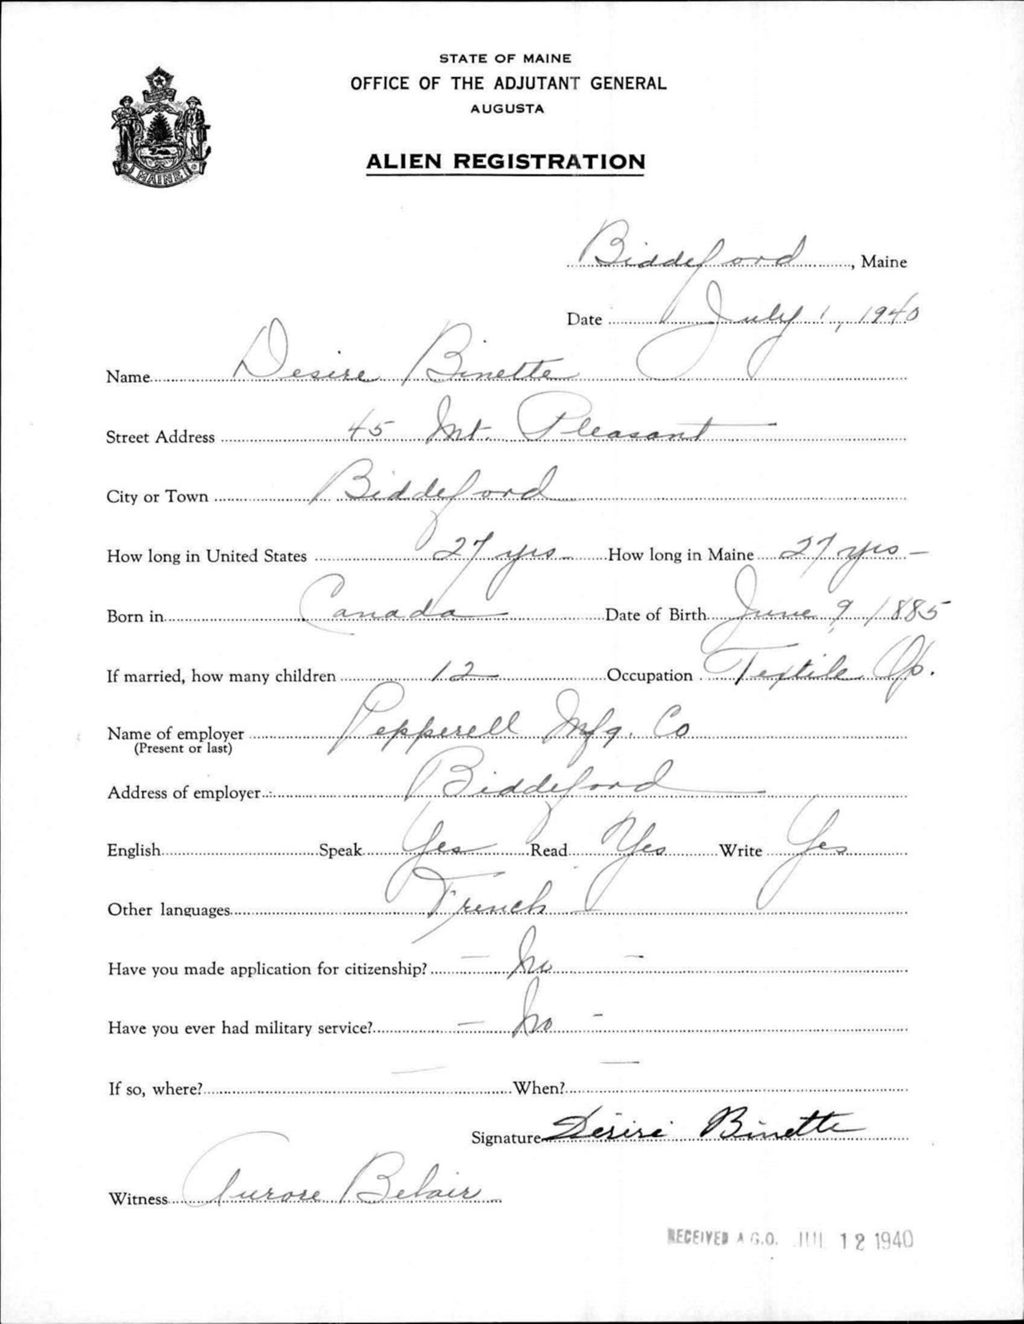 STATE OF MAINE
OFFICE OF THE ADJUTANT GENERAL
AUGUSTA
ALIEN REGISTRATION
MAINE
Biddeford, Maine
Date July 1, 1940
Name Desire Binette
Street Address 45 Mt. Pleasant
City or Town Biddeford
How long in United States 27 yrs How long in Maine 27 yrs
Born in Canada Date of Birth June 9, 1885
If married, how many children 12 Occupation Textile Op.
Name of employer Pepperell Mfg. Co
(Present or last)
Address of employer Biddeford
English Speak Yes Read Yes Write Yes
Other languages French
Have you made application for citizenship? No
Have you ever had military service? No
If so, where? — When? —
Signature Désiré Binette
Witness Aurore Belair
RECEIVED A.G.O. JUL 12 1940